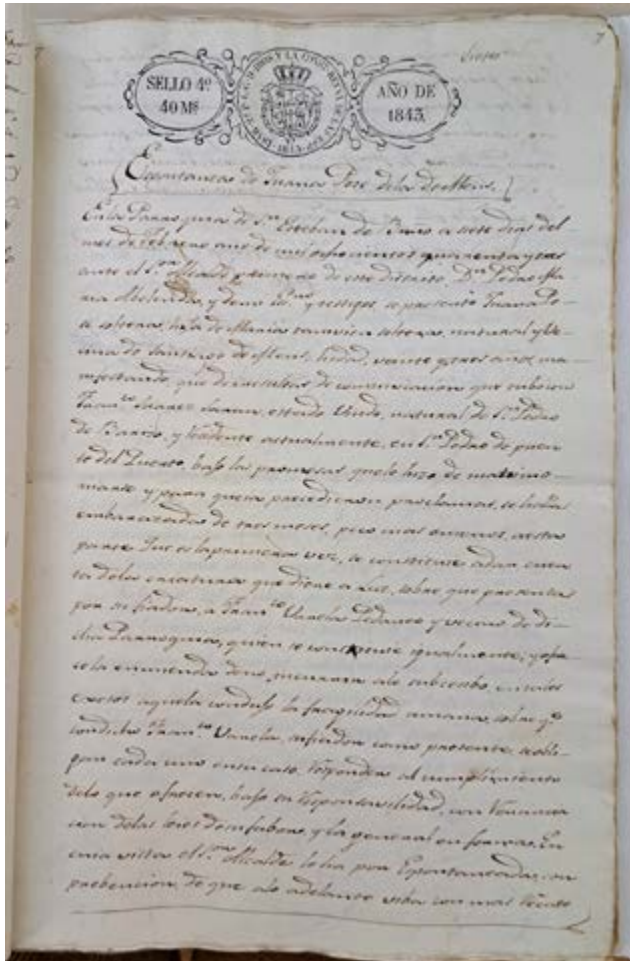 siete
7
SELLO 4º
40 Ms
AÑO DE
1843.
Espontanea de Juana Pose de la de Mens.
En la Parroquia de Sn Esteban de a siete dias del
mes de Febrero año de mil ochocientos quarenta y tres
ante el Sor Alcalde primero de este distrito Dn Pedro Ma
ria y testigos se presentó Juana Po-
se soltera, hija de Maria tambien soltera, natural y Ve-
cina de Santiago de Mens, hedad veinte y tres años, ma
nifestando, que de resultas de comunicacion que tubo con
Franco Suarez estado Viudo, natural de Sn Pedro
de y Vesidente actualmente en Sn Pedro de
to del Puerto, bajo las promesas que le hizo de matrimo-
niarse y para que precedieron proclamas, se halla
embarazada de tres meses, poco mas omenos, de esta
parte Que es la primera vez, se constituie adar cuen
ta de la criatura que diere a luz, sobre que presenta
por su fiador, a Franco Varela Pedaneo y vecino de di-
cha Parroquia, quien se constituie igualmente, y
aquela condujo la fragilidad umana, sobre qe
con dicho Franco Varela, su fiador como presente, se obli-
gan cada uno en su caso, Responder al cumplimiento
delo que ofrecen, bajo su Responsavilidad, con Renuncia
cion delas leies de su fabor, y la general en forma. En
cuia vista el Sor Alcalde la ha por Espontaneada, con
prebencion, de que alo adelante viba con mas Recato